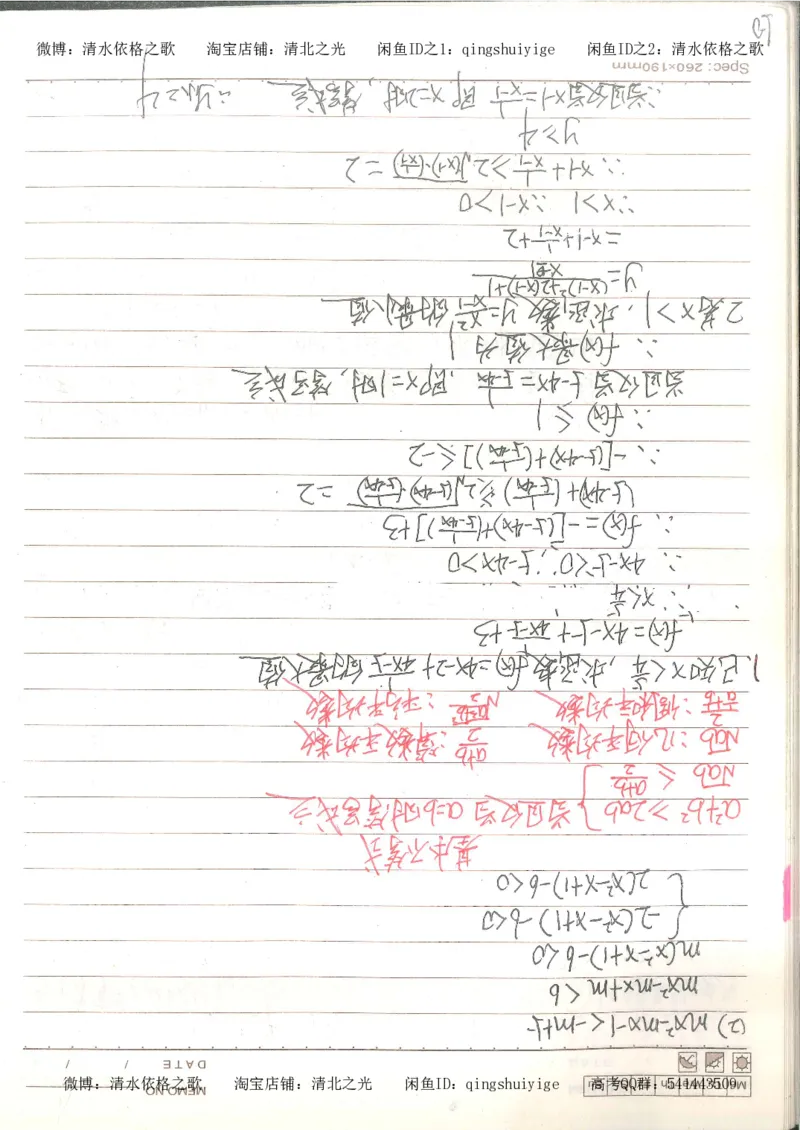 微博：清水依格之歌 淘宝店铺：清北之光 闲鱼ID之1：qingshuiyige 闲鱼ID之2：清水依格之歌
Spec: 260×190mm
(2) mx²-mx-1<-m+5
mx²-mx+m<6
m(x²-x+1)-6<0
{ -2(x²-x+1)-6<0
2(x²-x+1)-6<0
基本不等式
a²+b²≥2ab } 当且仅当a=b时等号成立
√ab ≤ (a+b)/2
√ab：几何平均数 (a+b)/2：算数平均数
：调和平均数 √((a²+b²)/2)：平方平均数
1.已知x<5/4，求函数f(x)=4x-2+1/(4x-5)的最大值
f(x)=4x-5+1/(4x-5)+3
∵x<5/4
∴4x-5<0∴5-4x>0
∴f(x)=-[(5-4x)+(1/(5-4x))]+3
(5-4x)+(1/(5-4x))≥2√((5-4x)·(1/(5-4x)))=2
∴-[(5-4x)+(1/(5-4x))]≤-2
∴f(x)≤1
当且仅当5-4x=1/(5-4x) 即x=1时，等号成立
∴f(x)最大值为1
2.若x>1，求函数y=x²/(x-1)的最小值
y=((x-1)²+2(x-1)+1)/(x-1)
=x-1+1/(x-1)+2
∵x>1 ∴x-1>0
∴x-1+1/(x-1)≥2√((x-1)·(1/(x-1)))=2
y≥4
∴当且仅当x-1=1/(x-1) 即x=2时，等号成立 ∴y≥4
MEMO NO.
DATE / /
微博：清水依格之歌 淘宝店铺：清北之光 闲鱼ID：qingshuiyige 高考QQ群：541443509